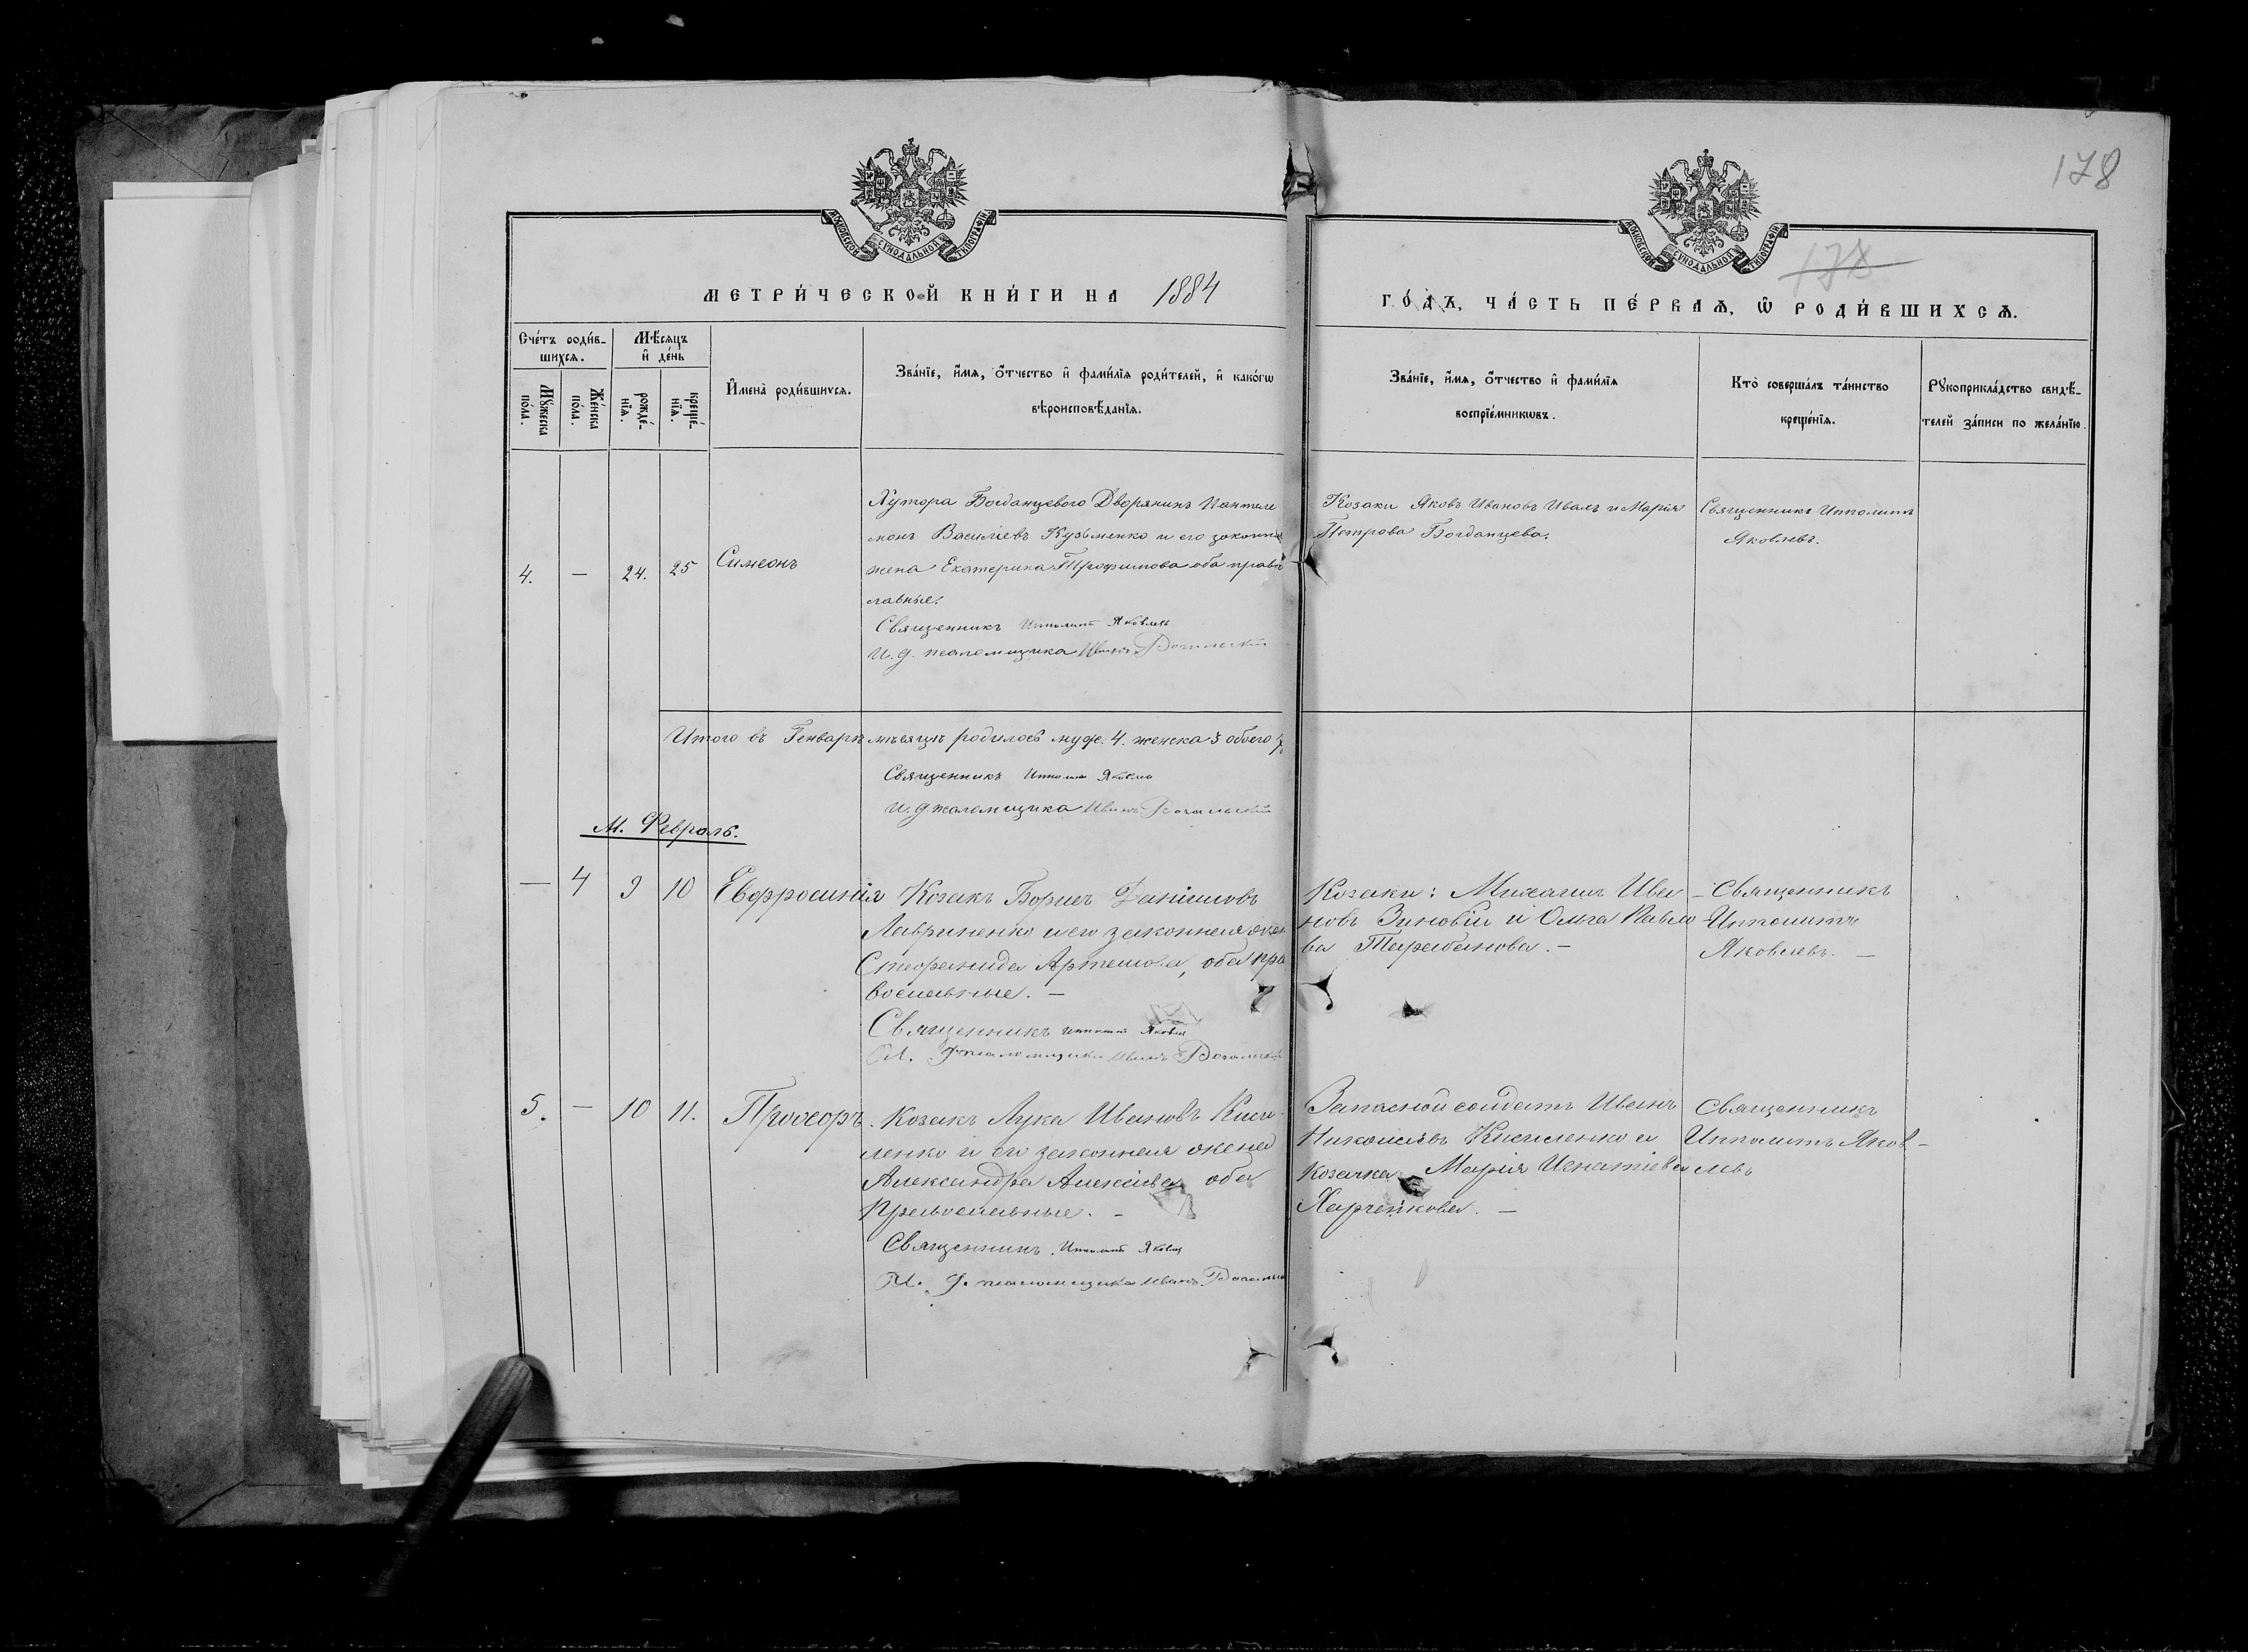 178
178
МОСКОВСКОЙ СѴНОДАЛЬНОЙ ТИПОГРАФІИ
МОСКОВСКОЙ СѴНОДАЛЬНОЙ ТИПОГРАФІИ
МЕТРИ́ЧЕСКОЙ КНИ́ГИ НА 1884
ГО́ДЪ, ЧА́СТЬ ПЕ́РВАѦ, Ѽ РОДИ́ВШИХСѦ.
Сче́тъ роди́в-
шихсѧ.
Мѣ́сѧцъ
и҆ де́нь
Мꙋ́жеска
по́ла.
Же́нска
по́ла.
рожде́-
нїѧ.
креще́-
нїѧ.
И҆мена̀ роди́вшихсѧ.
Зва́нїе, и҆́мѧ, ѻ҆́тчество и҆ фами́лїѧ роди́телей, и҆ како́гѡ
вѣроисповѣ́данїѧ.
Зва́нїе, и҆́мѧ, ѻ҆́тчество и҆ фами́лїѧ
воспрїе́мникѡвъ.
Кто̀ соверша́лъ та́инство
креще́нїѧ.
Рꙋкоприкла́дство свидѣ́-
телей за́писи по жела́нїю.
4. — 24. 25 Симеонъ
Хутора Богданцевого Дворянинъ Пантеле
монъ Василіевъ Кузьменко и его законная
жена Екатерина Трофимова оба правос
лавные.
Священникъ Ипполитъ Яковлевъ
И. д. псаломщика Иванъ
Козаки Яковъ Ивановъ Иваль и Марія
Петрова Богданцева.
Священникъ Ипполитъ
Яковлевъ.
Итого въ Генварѣ мѣсяцѣ родилось муж. 4. женска 3 обоего 7
Священникъ Ипполитъ Яковлевъ
И. д. псаломщика Иванъ
М. Февраль.
— 4 9 10 Евфросинія
Козакъ Борисъ Даніиловъ
Лавриненко и его законная жена
Стефанида Артемова, оба пра
вославные. —
Священникъ Ипполитъ Яковлевъ
И. д. псаломщика Иванъ
Козаки: Михаилъ Ива
новъ Зиновій и Ольга Павло
ва Тарабанова. —
Священникъ
Ипполитъ
Яковлевъ. —
5. — 10 11. Прохоръ.
Козакъ Лука Ивановъ Киси
ленко и его законная жена
Александра Алексіева, оба
православные. —
Священникъ Ипполитъ Яковлевъ
И. д. псаломщика Иванъ
Запасной солдатъ Иванъ
Николаевъ Кисиленко и
козачка Марія Игнатіева
Харченкова. —
Священникъ
Ипполитъ Яков-
левъ